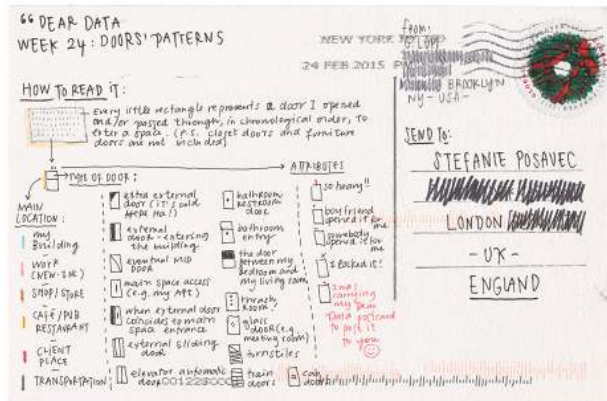 DEAR DATA
WEEK 24: DOORS' PATTERNS
NEW YORK
24 FEB 2015 PM
FROM:
G. LUPI
BROOKLYN
NY - USA -
HOW TO READ IT:
Every little rectangle represents a door I opened
and/or passed through, in chronological order, to
enter a space. (P.S. closet doors and furniture
doors are not included)
SEND TO:
STEFANIE POSAVEC
LONDON
- UK -
ENGLAND
TYPE OF DOOR:
ATTRIBUTES
MAIN
LOCATION:
my
Building
WORK
(NEW-INC)
SHOP/STORE
CAFÉ/PUB
RESTAURANT
CLIENT
PLACE
TRANSPORTATION
extra external
door (it's cold
here ha!)
external
door - entering
the building
eventual MID
DOOR
main space access
(e.g. my APT)
when external door
coincides to main
space entrance
external sliding
door
elevator automatic
door
bathroom
restroom
door
bathroom
entry
the door
between my
bedroom and
my living room
thrash
Room!
glass
door (e.g.
meeting room)
turnstiles
train
doors
cab
doors
so heavy!!
boyfriend
opened it for
me
somebody
opened it for
me
I locked it!
I was
carrying
my Dear
Data postcard
to post it
to you